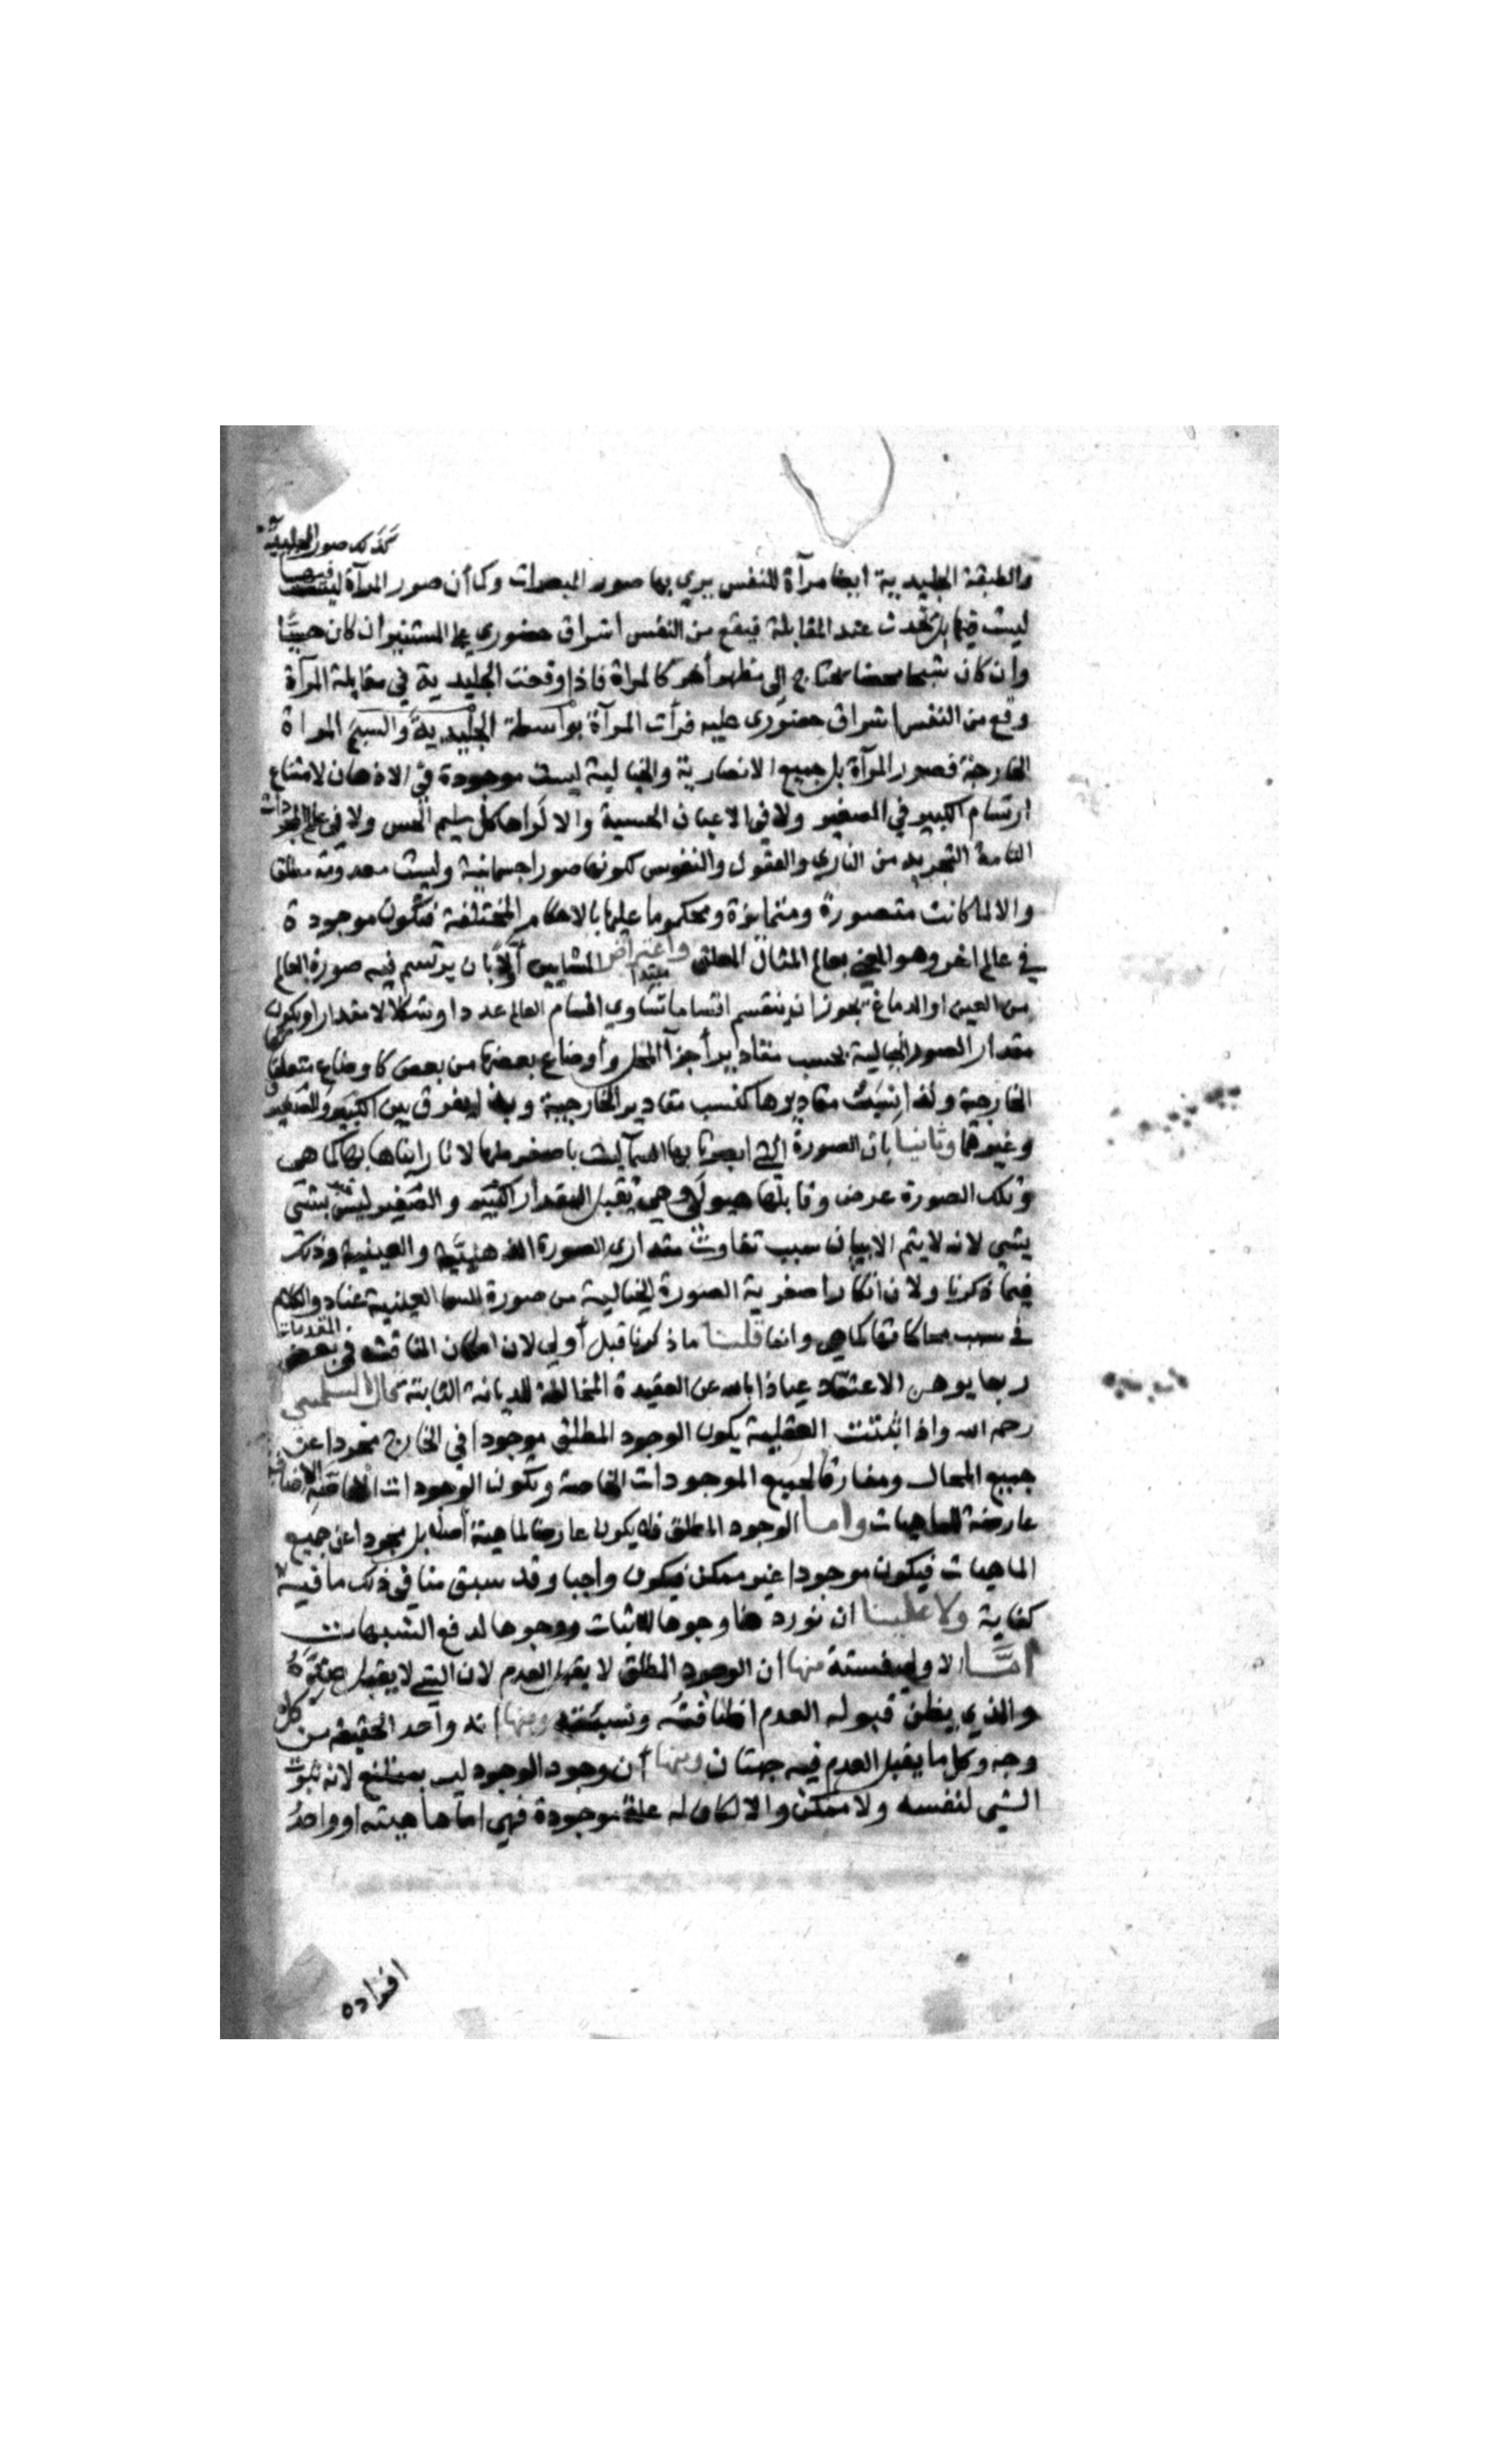 كذلك صور الجليدية
والطبقة الجليدية ايضا مرآة للنفس يري بها صور المبصرات وكما أن صور المرآة ليست فيها
ليست فيها بل تحدث عند المقابلة فيقع من النفس اشراق حضوري علي المستنير ان كان حسيًّا
وان كان شبحا محضا يحتاج إلى مظهر أخر كالمراة فاذا وقعت الجليدية في مقابلة المرآة
وقع من النفس اشراق حضوري عليه فرأت المرآة بواسطة الجليدية والشبح المراة
الخارجة فصور المرآة بل جميع الابصارية والخيالية ليست موجودة في الاذهان لامتناع
ارتسام الكبير في الصغير ولا في الاعيان الحسية والا لراها كل سليم الحس ولا في عالم المجردات
التامة التجريد من الباري والعقول والنفوس لكونها صورا جسمانية وليست معدومة مطلقا
والا لما كانت متصورة ومتمايزة ومحكوما عليها بالاحكام المختلفة فتكون موجودة
في عالم اخر وهو المسمى بعالم المثال المعلق واعتراض المشايين أولا بان يرتسم فيه صورة العالم
مبتدا
من العين او الدماغ يجوز ان ينقسم اقساما تساوي اقسام العالم عددا وشكلا لا مقدارا ويكون
مقدار الصور الخيالية بحسب مقادير أجزآ المحل وأوضاع بعضها من بعض كاوضاع متعلقاتها
الخارجة ولذا نسبت مقاديرها كنسب مقادير الخارجية وبه ليفرق بين الكبير والصغير
وغيرها وثانيا بان الصورة التي ابصرنا بها السمآ ليست باصغر منها لانا رايناها بها كما هي
وتلك الصورة عرض وقابلها هيولي وهي تقبل المقدار الكبير والصغير ليس بشئ
بشي لانه لا يتم الا ببيان سبب تفاوت مقداري الصورة الذهنية والعينية وذلك
فيما ذكرنا ولان انكار اصغرية الصورة الخيالية من صورة السما العينية عناد والكلام
في سبب محاكاتها كما هي وانما قلنا ما ذكرنا قبل أولي لان امكان المناقشة في بعض المقدمات
ربما يوهن الاعتقاد عياذا بالله عن العقيدة المخالطة للديانة الثابتة قال
رحمه الله واذا اثبتت العقلية يكون الوجود المطلق موجودا في الخارج مجردا عن
جميع المحال ومفارقا لجميع الموجودات الخاصة وتكون الوجودات الاضافية
عارضة للماهيات واما الوجود المطلق فلا يكون عارضا لماهية أصلا بل مجردا عن جميع
الماهيات فيكون موجودا غير ممكن فيكون واجبا وقد سبق منا في ذلك ما فيه
كفاية ولا علينا ان نورد هنا وجوها للاثبات ووجوها لدفع الشبهات
امَّا الاولي فستة منها ان الوجود المطلق لا يقبل العدم لان الشي لا يقبل ضده
والذي يظن قبوله العدم اضافته ونسبته ومنها انه واحد الحقيقة من كل
وجه وكل ما يقبل العدم فيه جهتان ومنها أن وجود الوجود ليس بممتنع لانه ثبوت
الشي لنفسه ولا ممكن والا لكان له علة موجودة فهي اما ماهيته او واحدُ
افراده